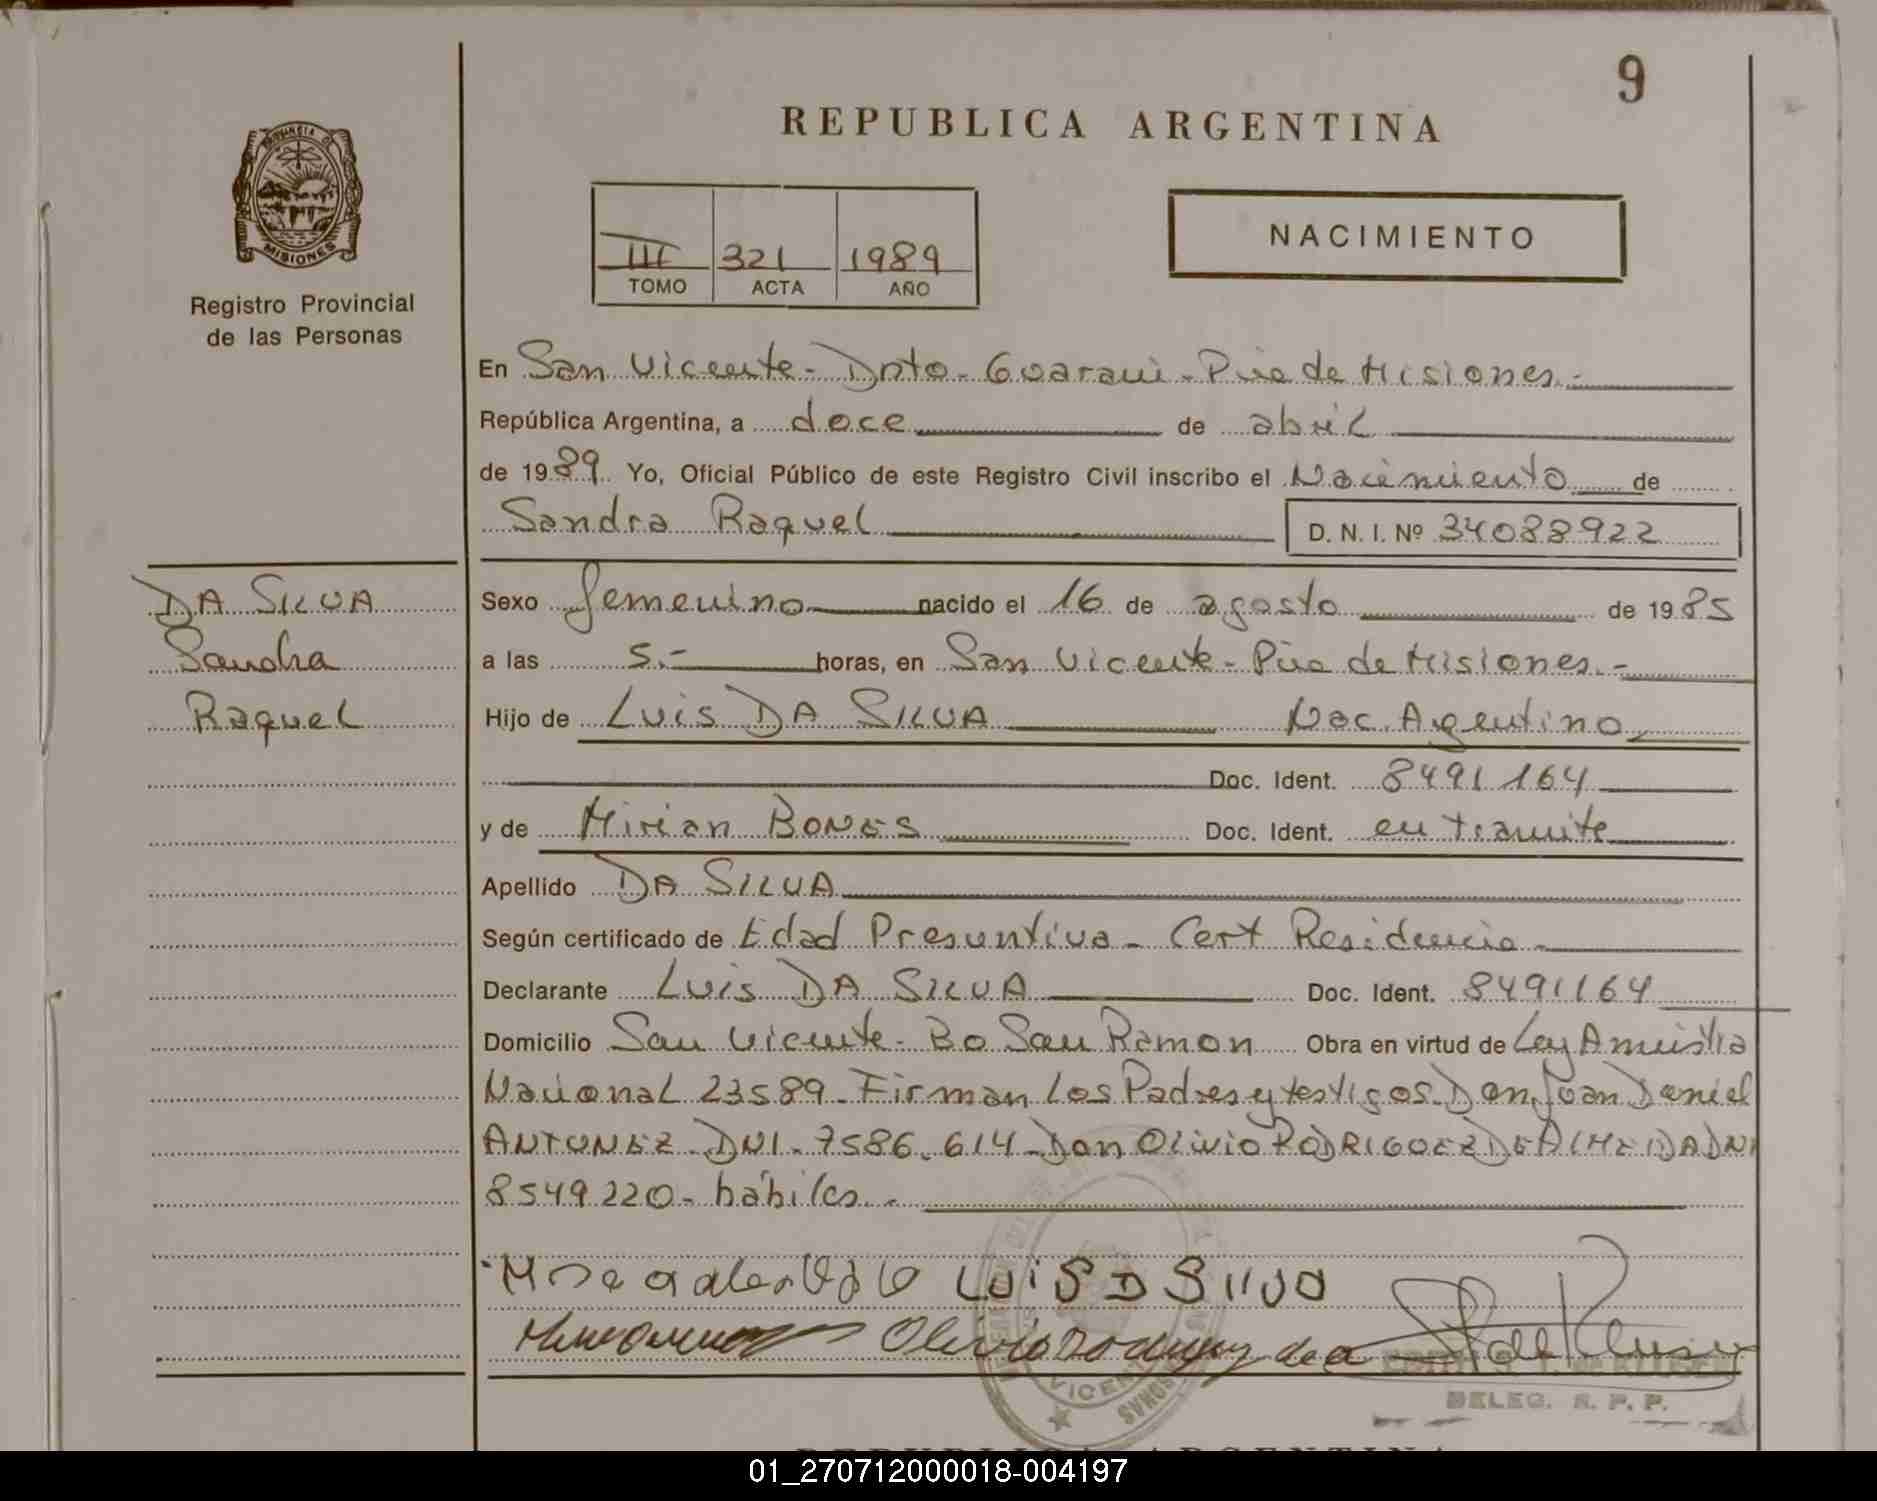 9
REPUBLICA ARGENTINA
PROVINCIA DE
MISIONES
Registro Provincial
de las Personas
III 321 1989
TOMO ACTA AÑO
NACIMIENTO
En San Vicente - Dpto - Guarani - Pcia de Misiones.-
República Argentina, a doce de abril
de 1989 Yo, Oficial Público de este Registro Civil inscribo el Nacimiento de
Sandra Raquel D. N. I. Nº 34088922
DA SILVA
Sandra
Raquel
Sexo femenino nacido el 16 de agosto de 1985
a las 5.- horas, en San Vicente - Pcia de Misiones.-
Hijo de Luis DA SILVA Nac. Argentino
Doc. Ident. 8491164
y de Mirian BONES Doc. Ident. en tramite
Apellido DA SILVA
Según certificado de Edad Presuntiva - Cert Residencia -
Declarante Luis DA SILVA Doc. Ident. 8491164
Domicilio San Vicente - Bo San Ramon Obra en virtud de Ley Amnistia
Nacional 23589 - Firman los Padres y testigos Don Juan Daniel
ANTUNEZ - DNI - 7586.614 - Don Olivio RODRIGUEZ DE ALMEIDA DNI
8549220 - hábiles.-
LUiS D SILVA
Olivio Rodriguez de a
VICEN
DELEG. R. P. P.
REPUBLICA ARGENTINA
01_270712000018-004197